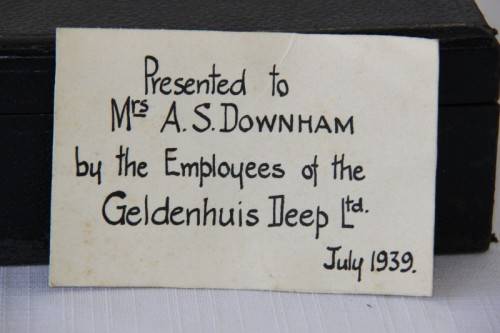 Presented to
Mrs A.S. DOWNHAM
by the Employees of the
Geldenhuis Deep Ltd.
July 1939.